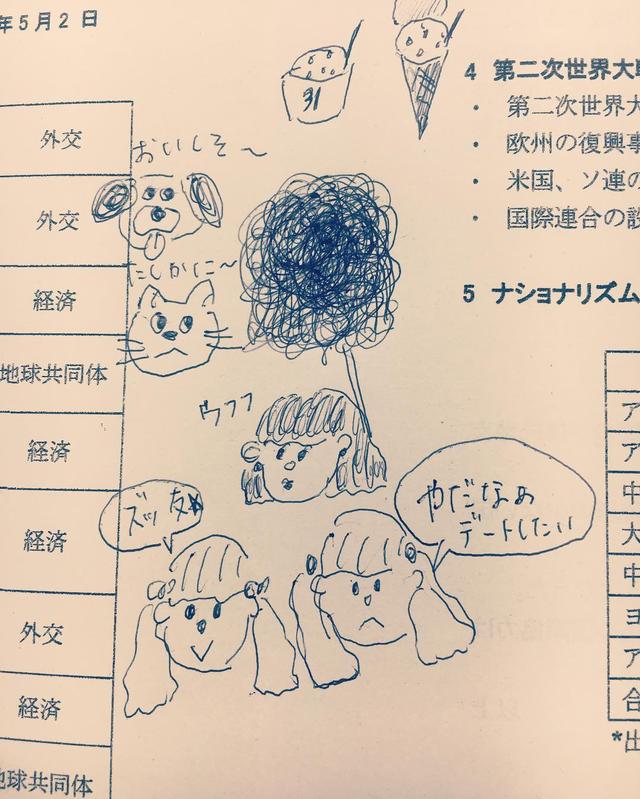 年5月2日
外交
外交
経済
地球共同体
経済
経済
外交
経済
地球共同体
31
おいしそ〜
たしかに〜
ウフフ
ズッ友
やだなぁ
デートしたい
4 第二次世界大
・ 第二次世界大
・ 欧州の復興事
・ 米国、ソ連の
・ 国際連合の設
5 ナショナリズム
ア
ア
中
大
中
ヨ
ア
合
*出